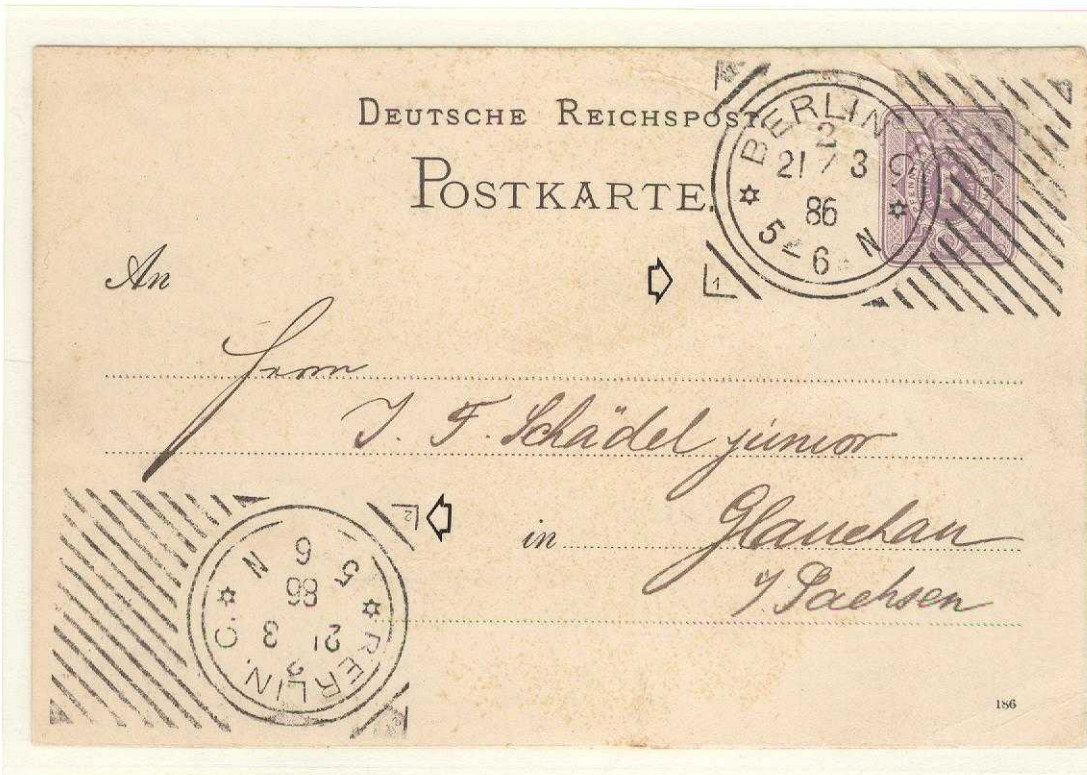 DEUTSCHE REICHSPOST.
POSTKARTE.
BERLIN C.
2
21 / 3
86
5-6 N
1
An
Herrn
J. F. Schädel junior
in Glauchau
i/Sachsen
2
BERLIN. C.
2
21 3
86
5 6 N
186